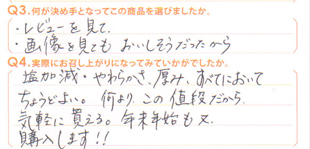 Q3.何が決め手となってこの商品を選びましたか。
・レビューを見て、
・画像を見ても おいしそうだったから
Q4.実際にお召し上がりになってみていかがでしたか。
塩加減・やわらかさ、厚み、すべてにおいて
ちょうどよい。何より、この値段だから
気軽に買える。年末年始も又
購入します!!